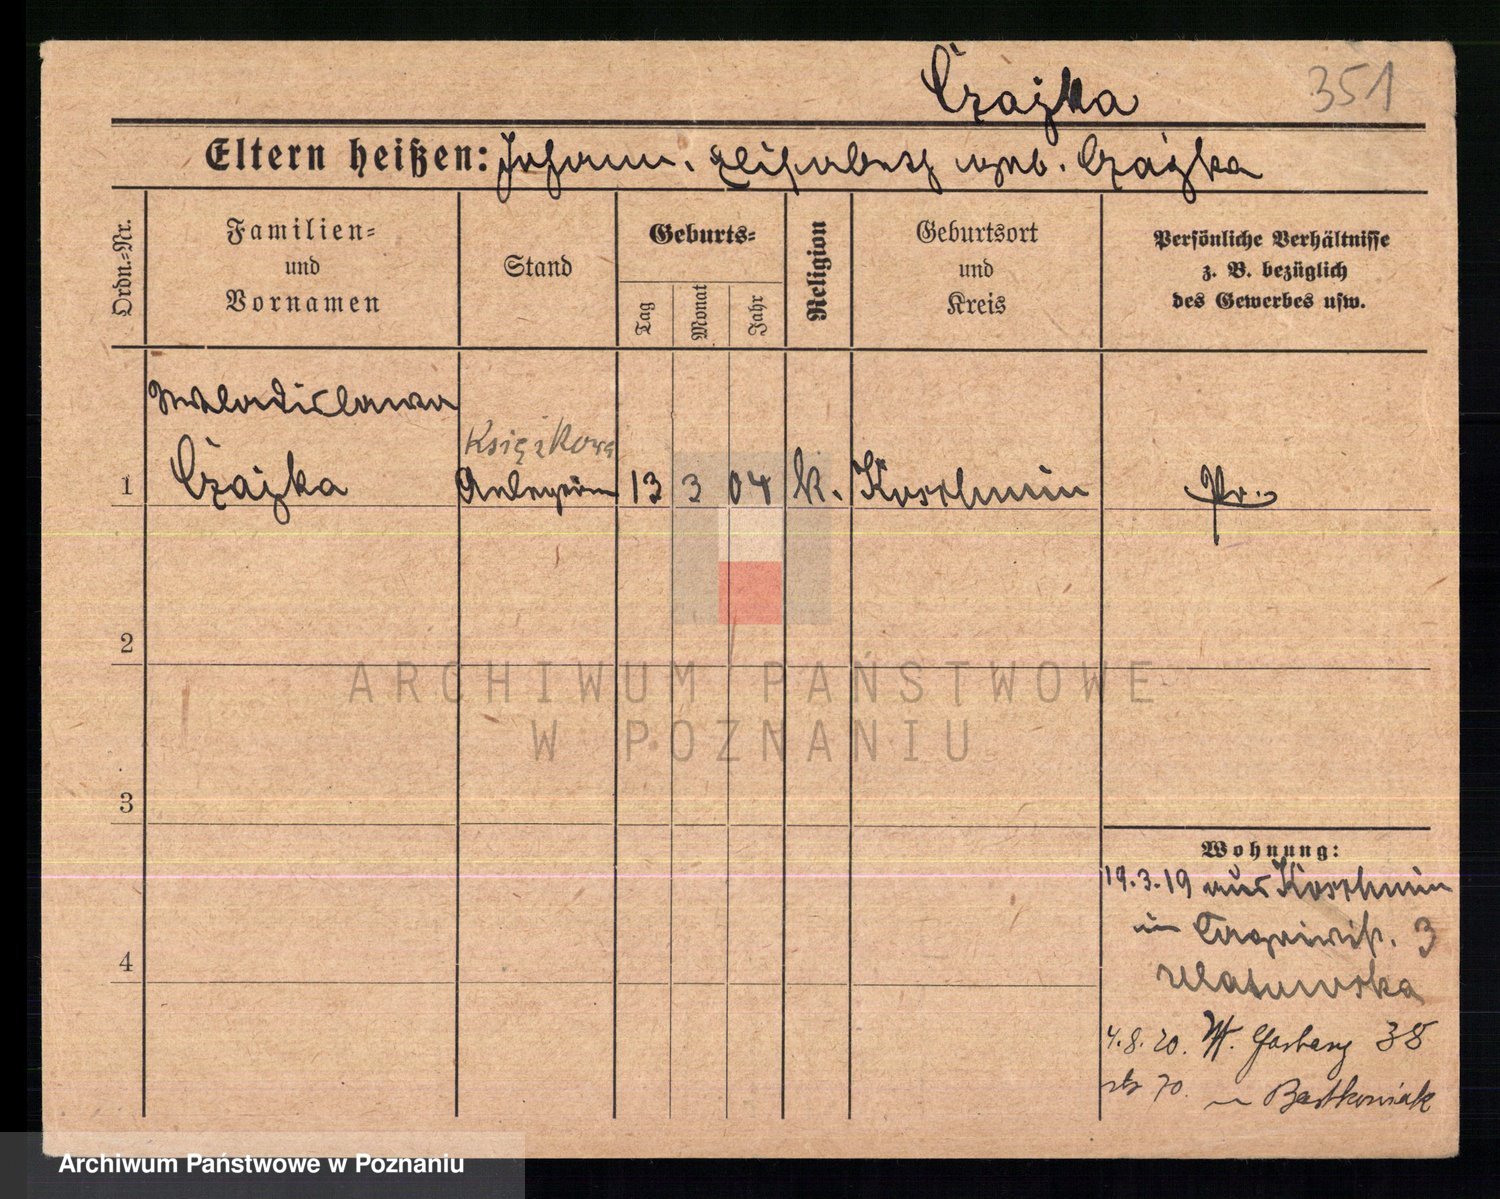 Czajka 351
Eltern heißen: Johann. Elisabeth geb. Czajka
Ordn.-Nr.
Familien-
und
Vornamen
Stand
Geburts-
Tag
Monat
Jahr
Religion
Geburtsort
und
Kreis
Persönliche Verhältnisse
z. B. bezüglich
des Gewerbes usw.
Wladislawa
Książkowa
1 Czajka 13 3 04 k. Koschmin Pr.
2
ARCHIWUM PAŃSTWOWE
W POZNANIU
3
Wohnung:
19.3.19 aus Koschmin
3
4
4.8.20. W. Gerberg 38
70. Bartkowiak
Archiwum Państwowe w Poznaniu